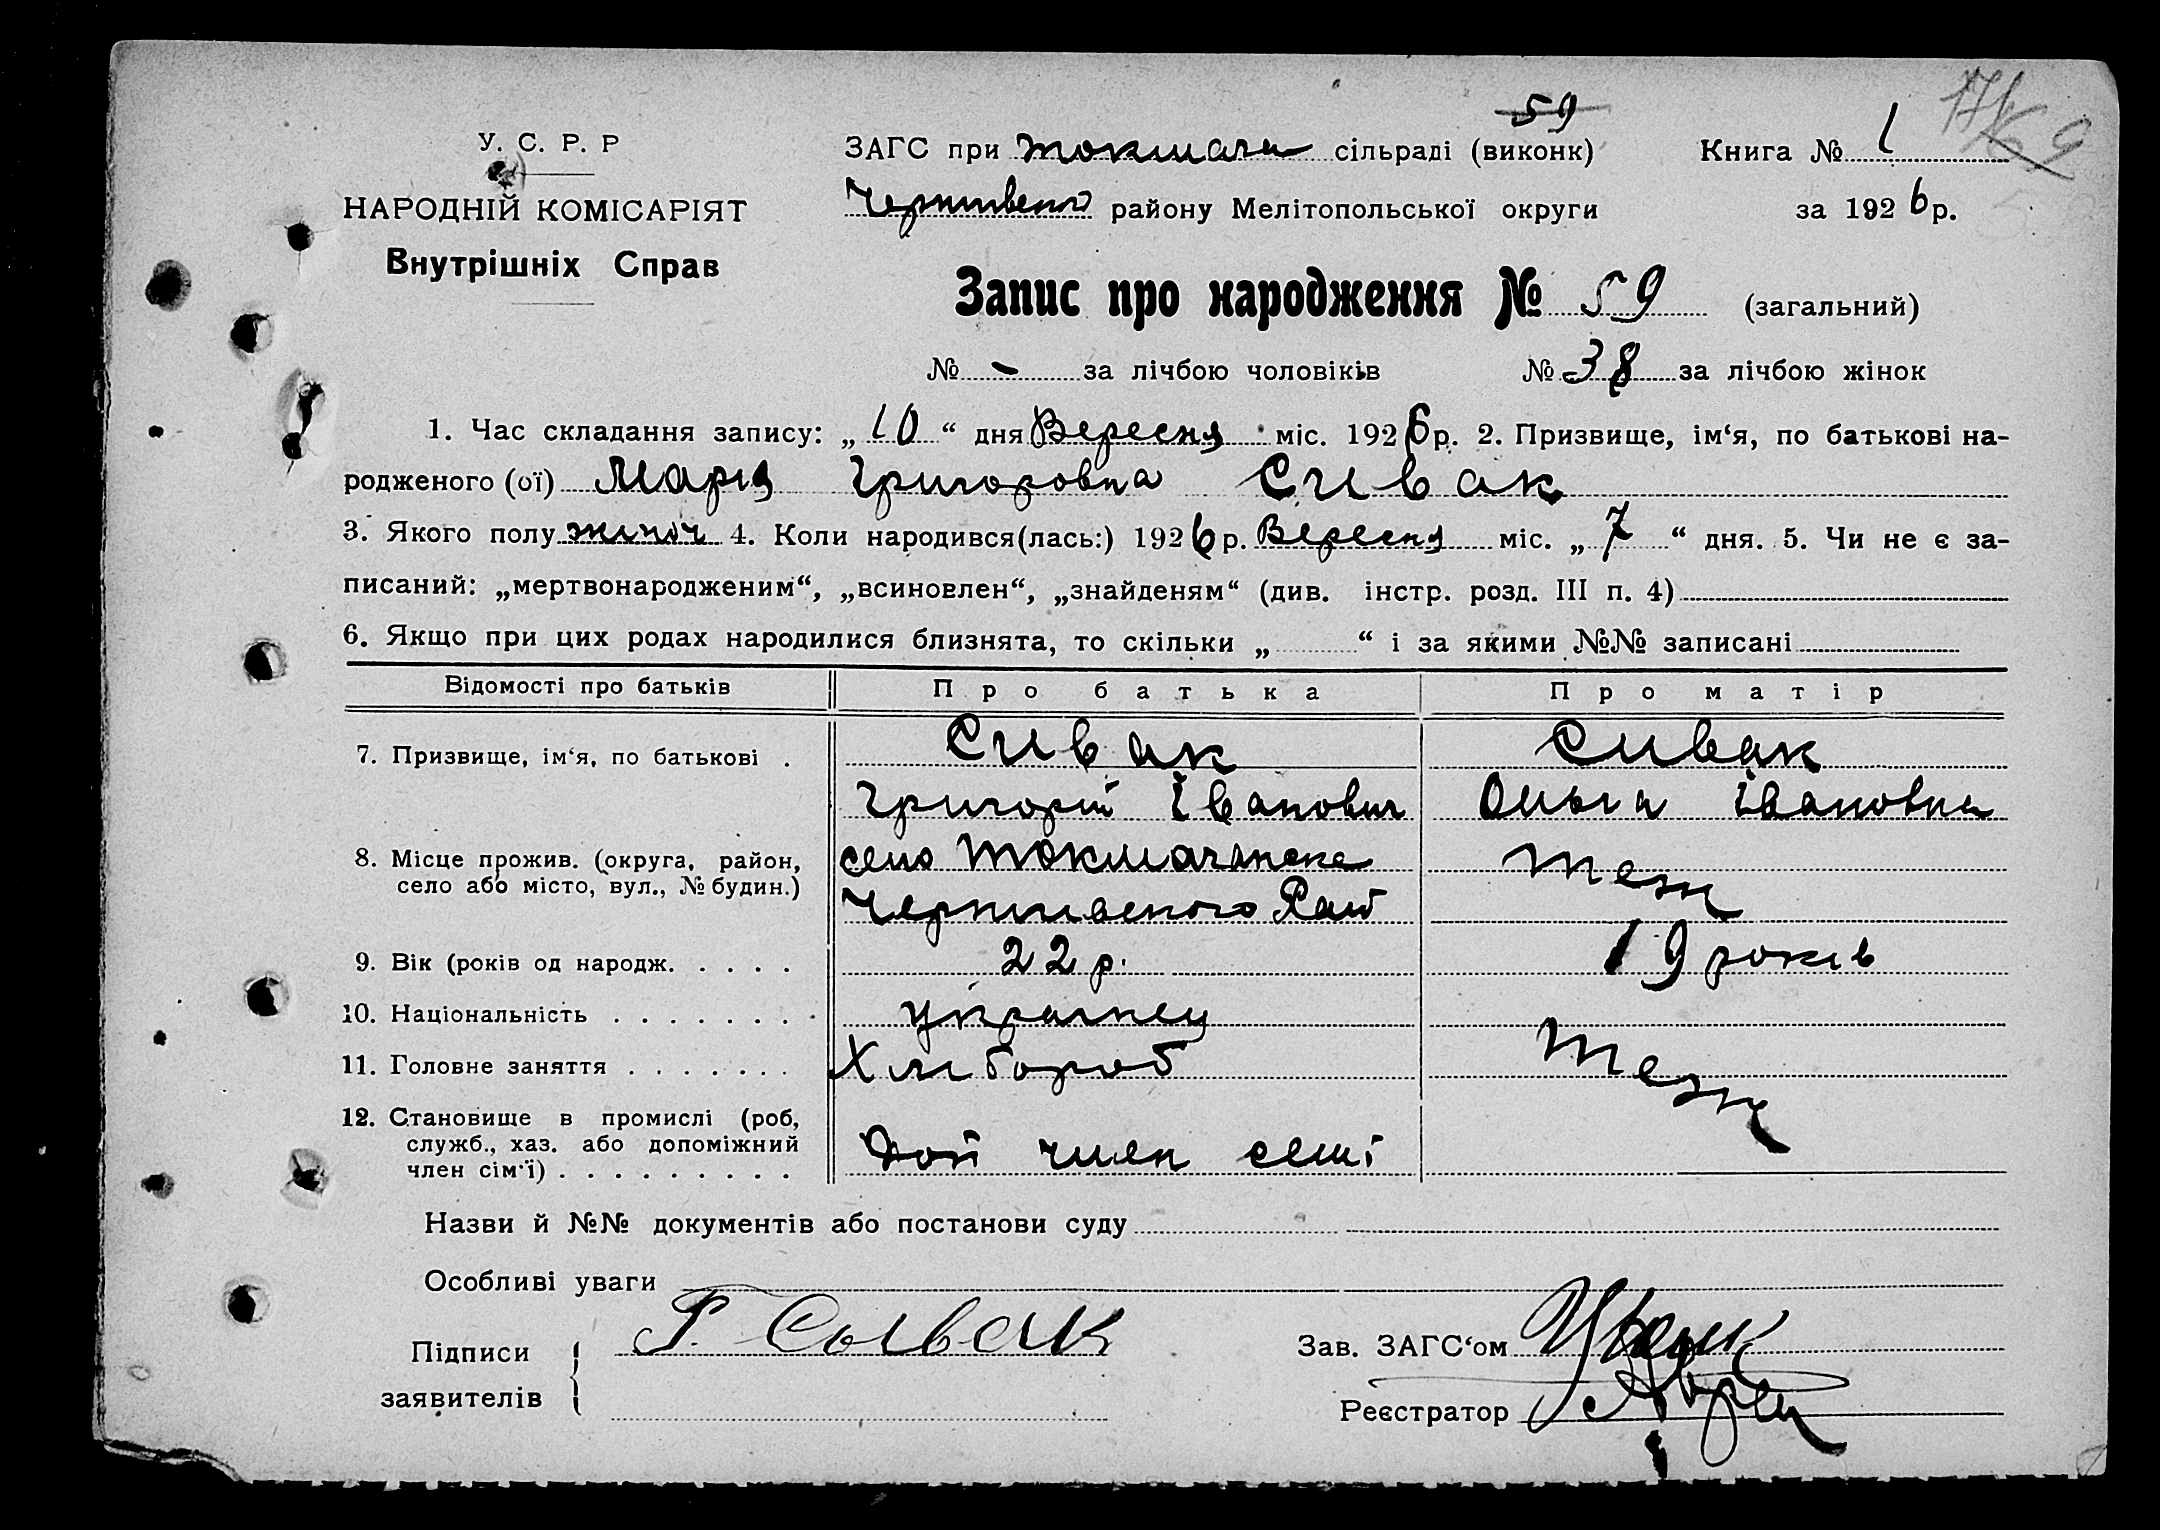 59
У. С. Р. Р
ЗАГС при Токмача сільраді (виконк)
Книга № 1
НАРОДНІЙ КОМІСАРІЯТ
району Мелітопольської округи
за 1926 р.
Внутрішніх Справ
Запис про народження № 59 (загальний)
№ - за лічбою чоловіків № 38 за лічбою жінок
1. Час складання запису: „10“ дня Вересня міс. 1926 р. 2. Призвище, ім‘я, по батькові на-
родженого (ої) Марія Григоровна Сивак
3. Якого полу жіноч 4. Коли народився(лась:) 1926 р. Вересня міс. „7“ дня. 5. Чи не є за-
писаний: „мертвонародженим“, „всиновлен“, „знайденям“ (див. інстр. розд. III п. 4)
6. Якщо при цих родах народилися близнята, то скільки „ “ і за якими №№ записані
Відомості про батьків Про батька Про матір
7. Призвище, ім‘я, по батькові . Сивак Сивак
Григорій Іванович Ольга Івановна
8. Місце прожив. (округа, район, село Токмачанске теж
село або місто, вул., № будин.) Чернигвского Рай
9. Вік (років од народж. . . . . 22 р. 19 років
10. Національність . . . . . . . . українец
11. Головне заняття . . . . . . . Хлібороб теж
12. Становище в промислі (роб,
служб., хаз. або допоміжний
член сім‘ї) . . . . . . . . . Доп член семі
Назви й №№ документів або постанови суду
Особливі уваги
Підписи Г. Сывак Зав. ЗАГС‘ом
заявителів Реєстратор